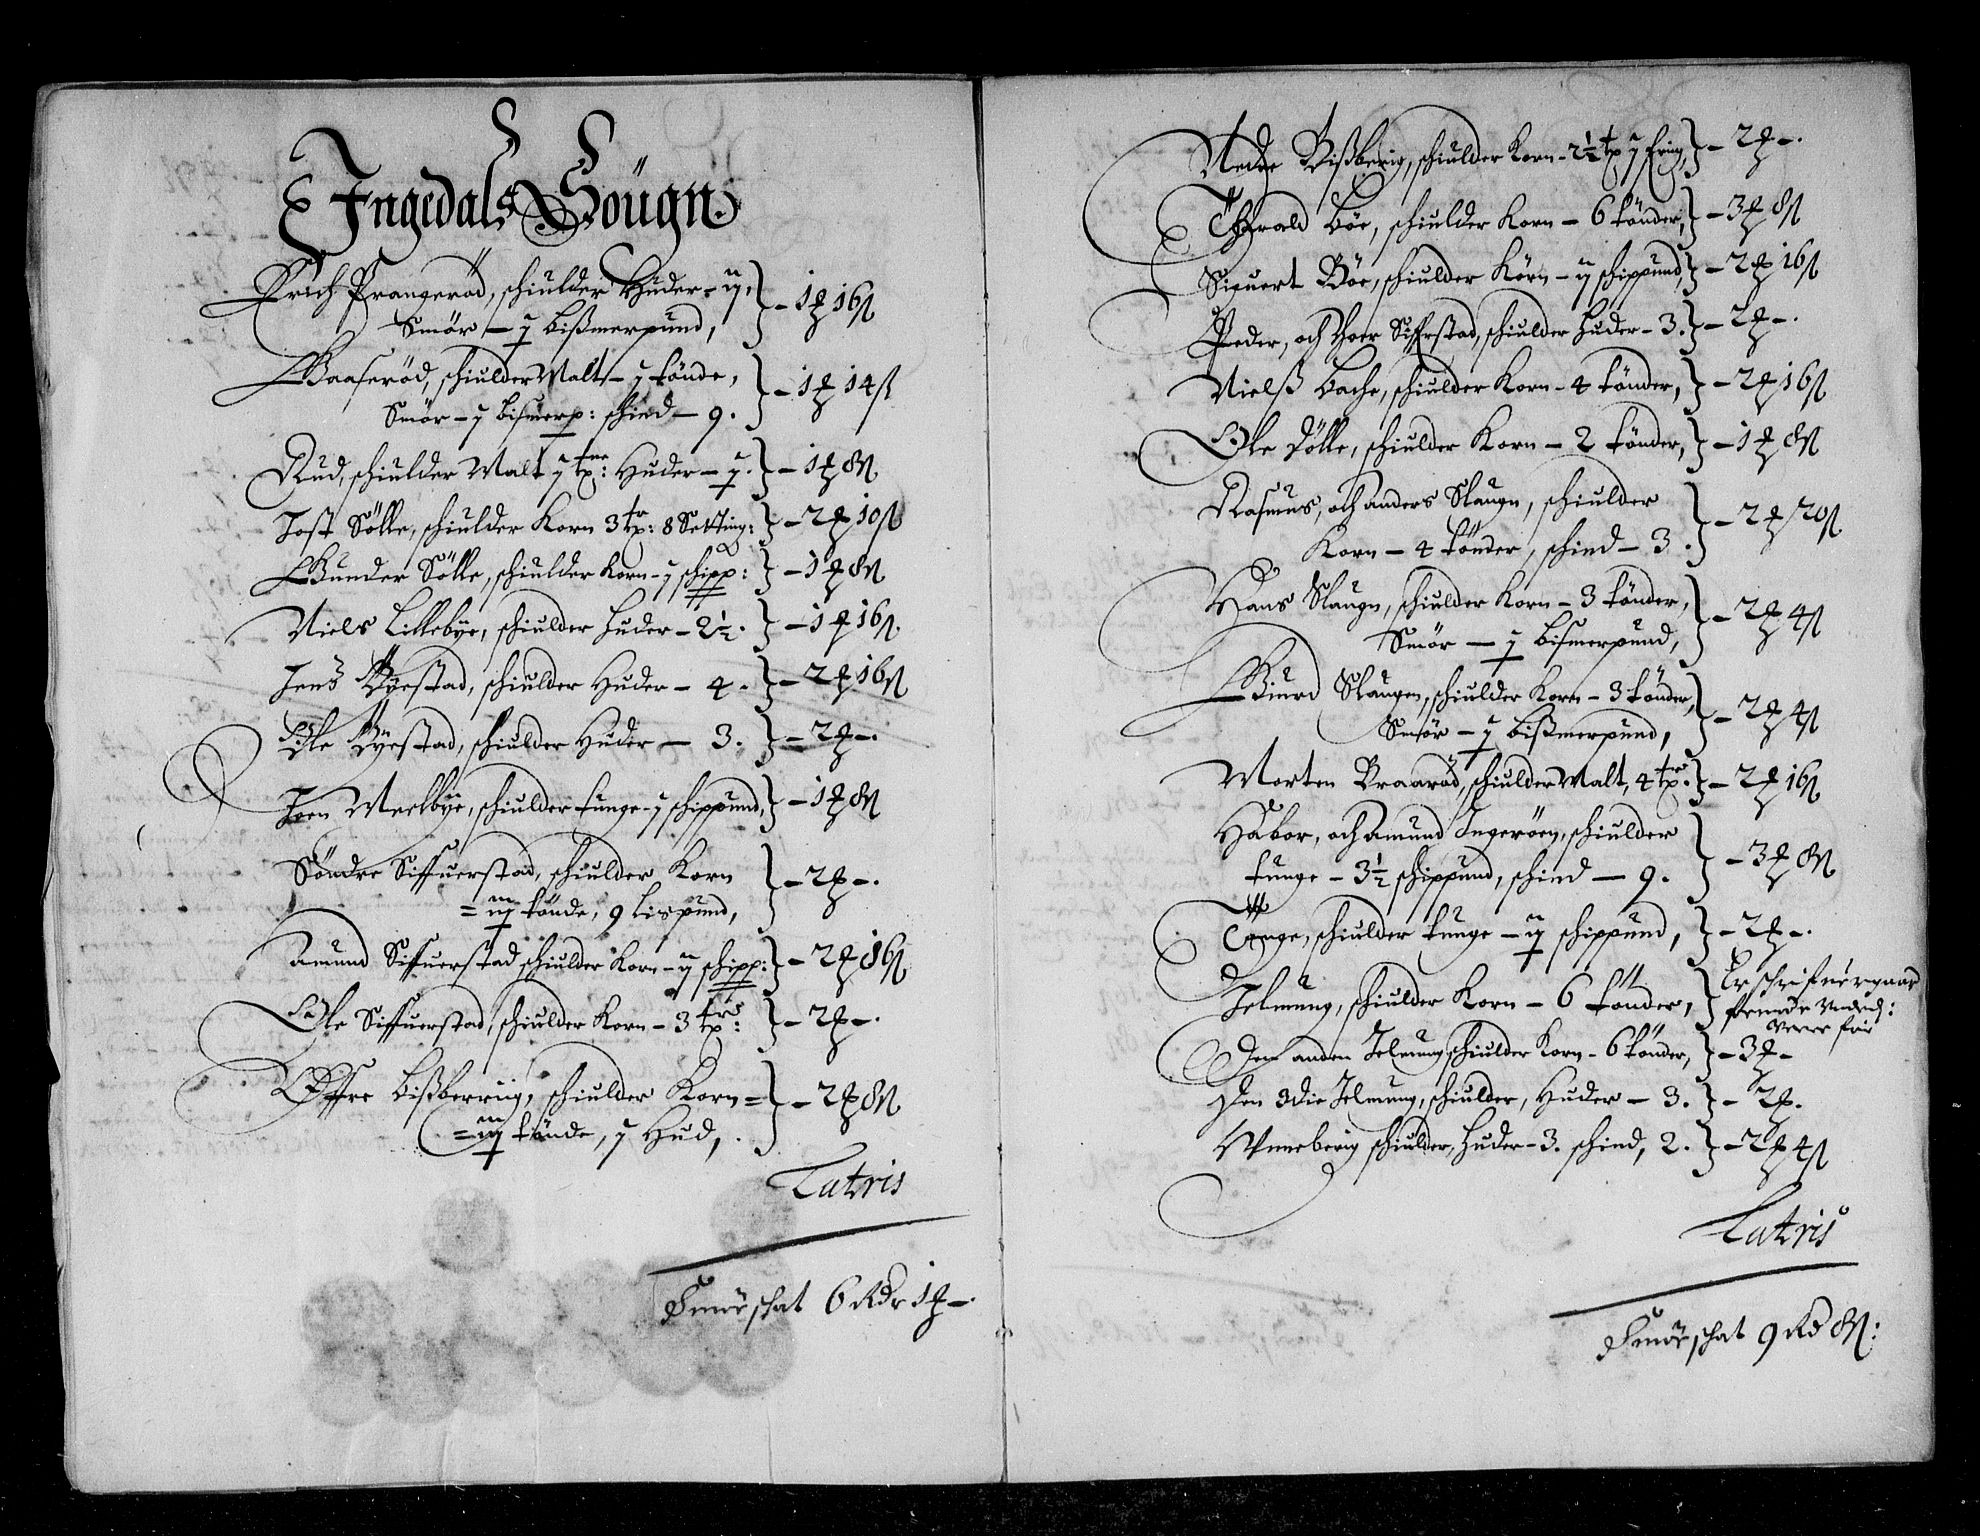 Ingedals Sougn.
Erich Prangerød, schiulder Huder - ij,
Smør - j bißmerpund, } - 1 ℔ 16 ß
Gaaserød, schiulder Malt - j tønde,
Smør - j bismerp: schind - 9. } - 1 ℔ 14 ß
Rud, schiulder Malt j tne: Huder - j. } - 1 ℔ 8 ß
Jost Sølle, schiulder Korn 3 tr: 8 Setting: } - 2 ℔ 10 ß
Gunder Sølle, schiulder Korn - j schipp: } - 1 ℔ 8 ß
Niels Lillebye, schiulder Huder - 2½. } - 1 ℔ 16 ß
Jens Byestad, schiulder Huder - 4. } - 2 ℔ 16 ß
Ole Byestad, schiulder Huder - 3. } - 2 ℔ -.
Joen Melbye, schiulder tunge - j schippund, } - 1 ℔ 8 ß
Søndre Siffuerstad, schiulder Korn
= iij tønde, 9 Lispund, } - 2 ℔ -.
Amund Siffuerstad schiulder Korn - ij schipp: } - 2 ℔ 16 ß
Ole Siffuerstad, schiulder Korn - 3 trs: } - 2 ℔ -.
Øffre bißberrig, schiulder Korn =
= iij tønde, j Hud, } - 2 ℔ 8 ß
Latris
Smør schat 6 Rdr 1 ℔ -.
Nedre Bißberig, schiulder Korn - 2½ t j fring, } - 2 ℔ -.
Tharald Bøe, schiulder Korn - 6 tønder, } - 3 ℔ 8 ß
Siguert Bøe, schiulder Korn - ij schippund, } - 2 ℔ 16 ß
Peder, och Iver Siffrstad, schiulder Huder - 3. } - 2 ℔ -.
Nielß Bache, schiulder Korn - 4 tønder, } - 2 ℔ 16 ß
Ole Dølle, schiulder Korn - 2 tønder, } - 1 ℔ 8 ß
Rasmus, och anders Slaugn, schiulder
Korn - 4 tønder, schind - 3. } - 2 ℔ 20 ß
Hans Slaugn, schiulder Korn - 3 tønder,
Smør - j bismerpund, } - 2 ℔ 4 ß
Giurd Slaugen, schiulder Korn - 3 tønder,
Smør - j bißmerpund, } - 2 ℔ 4 ß
Morten Braarød, schiulder Malt, 4 trs. } - 2 ℔ 16 ß
Habor, och Amund Ingerøen, schiulder
tunge - 3½ schippund, schind - 9. } - 3 ℔ 8 ß
Tonge, schiulder tunge - ij schippund, } - 2 ℔ -.
Jelmung, schiulder Korn - 6 tønder, } Er schrifuergaar
Den anden Jelmung schiulder Korn - 6 tønder, } - 3 ℔ -
Den 3die Jelmung, schiulder, Huder - 3. } - 2 ℔.
Vnneberig schiulder, Huder - 3. schind, 2. } - 2 ℔ 4 ß
Latris
Smør schat 9 Rd 8 ß: